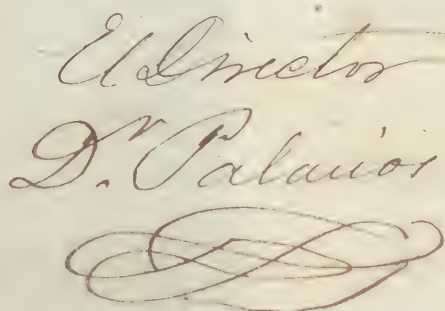 El Director
D.r Palacios